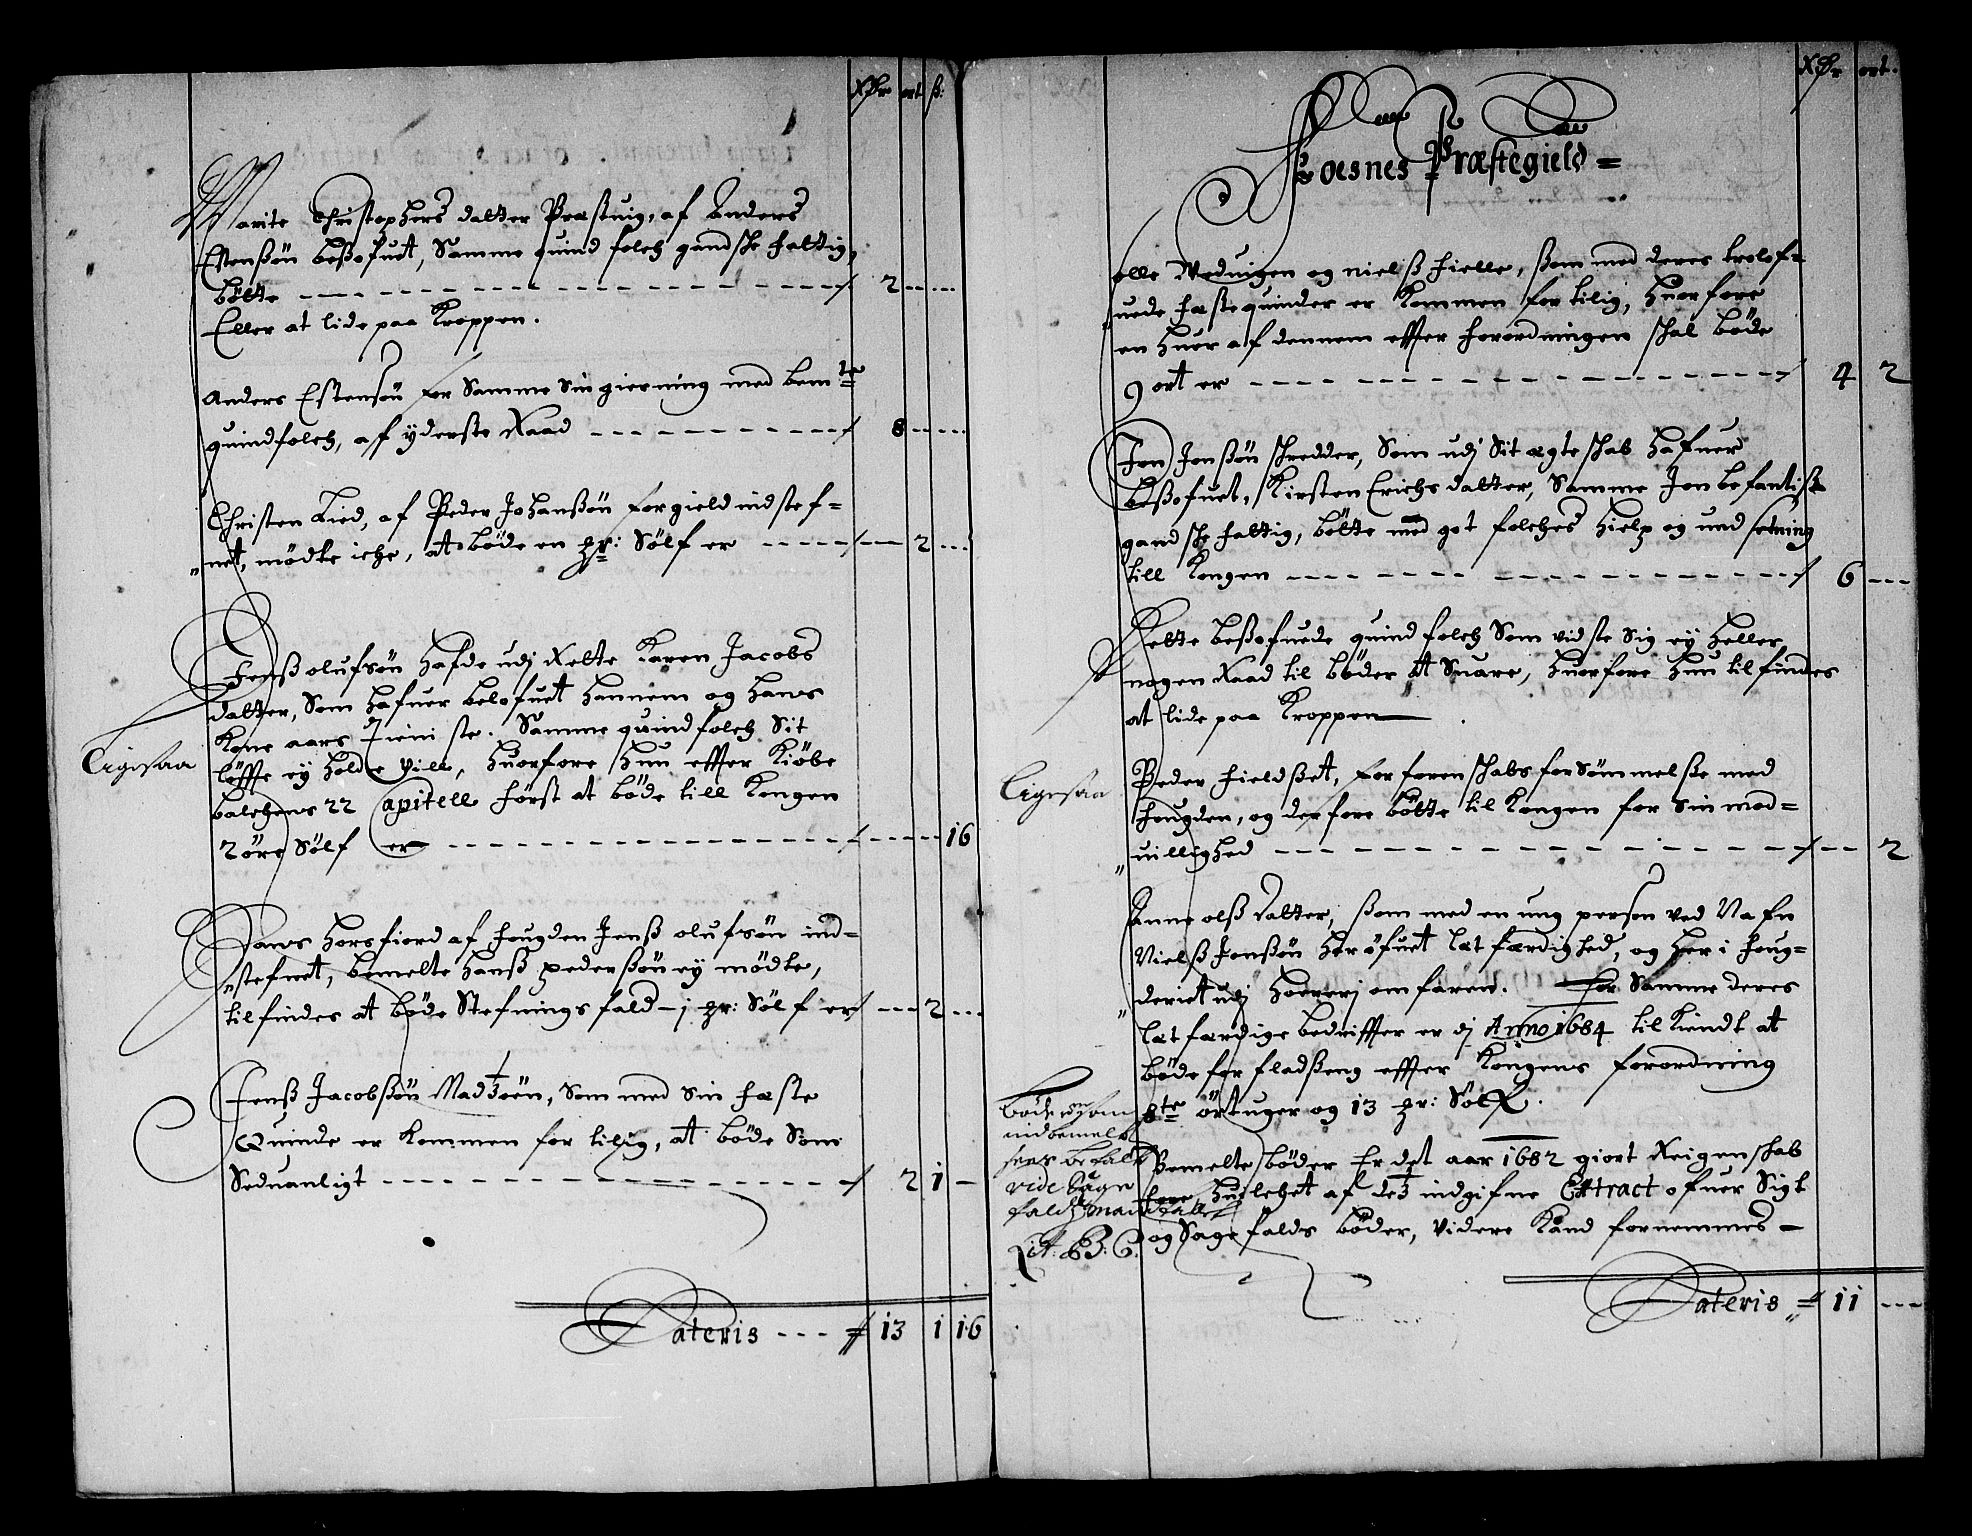 Rdr ort ß:
Marite Christophers datter Præstuig, af Anders
Estensøn besofuet, Samme quindfolch gandske fattig,
bötte 2
Eller at lide paa Kroppen.
Anders Estensøn for Samme Sin gierning med bemte
quindfolch, af yderste Raad 8
Christen Lied, af Peder Johanßøn for gield indstef-
net, mødte iche, at böde en pr: Sölf er 2
Jenß olufsøn hafde udj Rette Karen Jacobs
datter, Som hafuer belofuet hannem og hans
Kone aars Tieniste. Samme quindfolch Sit
Ligesaa
löffte ey holde vill, huorfore hun effter Kiöbe
balchens 22 Capitell först at böde till Kongen
2 öre Sölf er 16
Hans horsfiord af fougden Jenß olufsøn ind-
stefnet, bemelte Hanß pederßøn ey mödte,
tilfindes at böde Stefnings fald - j pr: Sölf er 2
Jenß Jacobßøn Madzøen, Som med Sin fæste
Quinde er kommen for tilig, at böde Som
Seduanligt 2 1
Lateris 13 1 16
Rdr ort.
Foesnes Præstegield
olle Meduigen og nielß fielle, ßom med deres trolof-
uede fæste quinder er Kommen for tilig, huorfore
en huer af dennem effter forordningen schal böde
9 ort er 4 2
Jon Jonßøn schredder, Som udj Sit ægteschab hafuer
besofuet, Kirsten Erichs datter, Samme Jon befantist
gandske fattig, bötte med got folches hielp og und setning
till Kongen 6
Rette besofuede quindfolch Som vidste Sig ey heller
nogen Raad til bøder at Suare, huorfore hun tilfindes
at lide paa Kroppen
Ligesaa
Peder fieldßet, for forenschabs forsömmelße med
fougden, og derfore bötte til Kongen for Sin mod-
uillighed 2
Anne olß datter, ßom med en ung person ved Nafn
Nielß Jonßøn her öfuet letfærdighed, og her i foug-
deriet udj hoererj omfaren. For Samme deres
letfærdige bedriffter er dj Anno 1684 tilkiendt at
böde for fladßeng effter Kongens forordning
8te örtuger og 13 pr: Sölf.
Bemelte böder Er det aar 1682 giort Reigenschab
fore, huilchet af detz indgifne Extract ofuer Sigt
og Sagefalds böder, videre Kand fornemmes
vide Sage
Lit: B: C.
Lateris 11